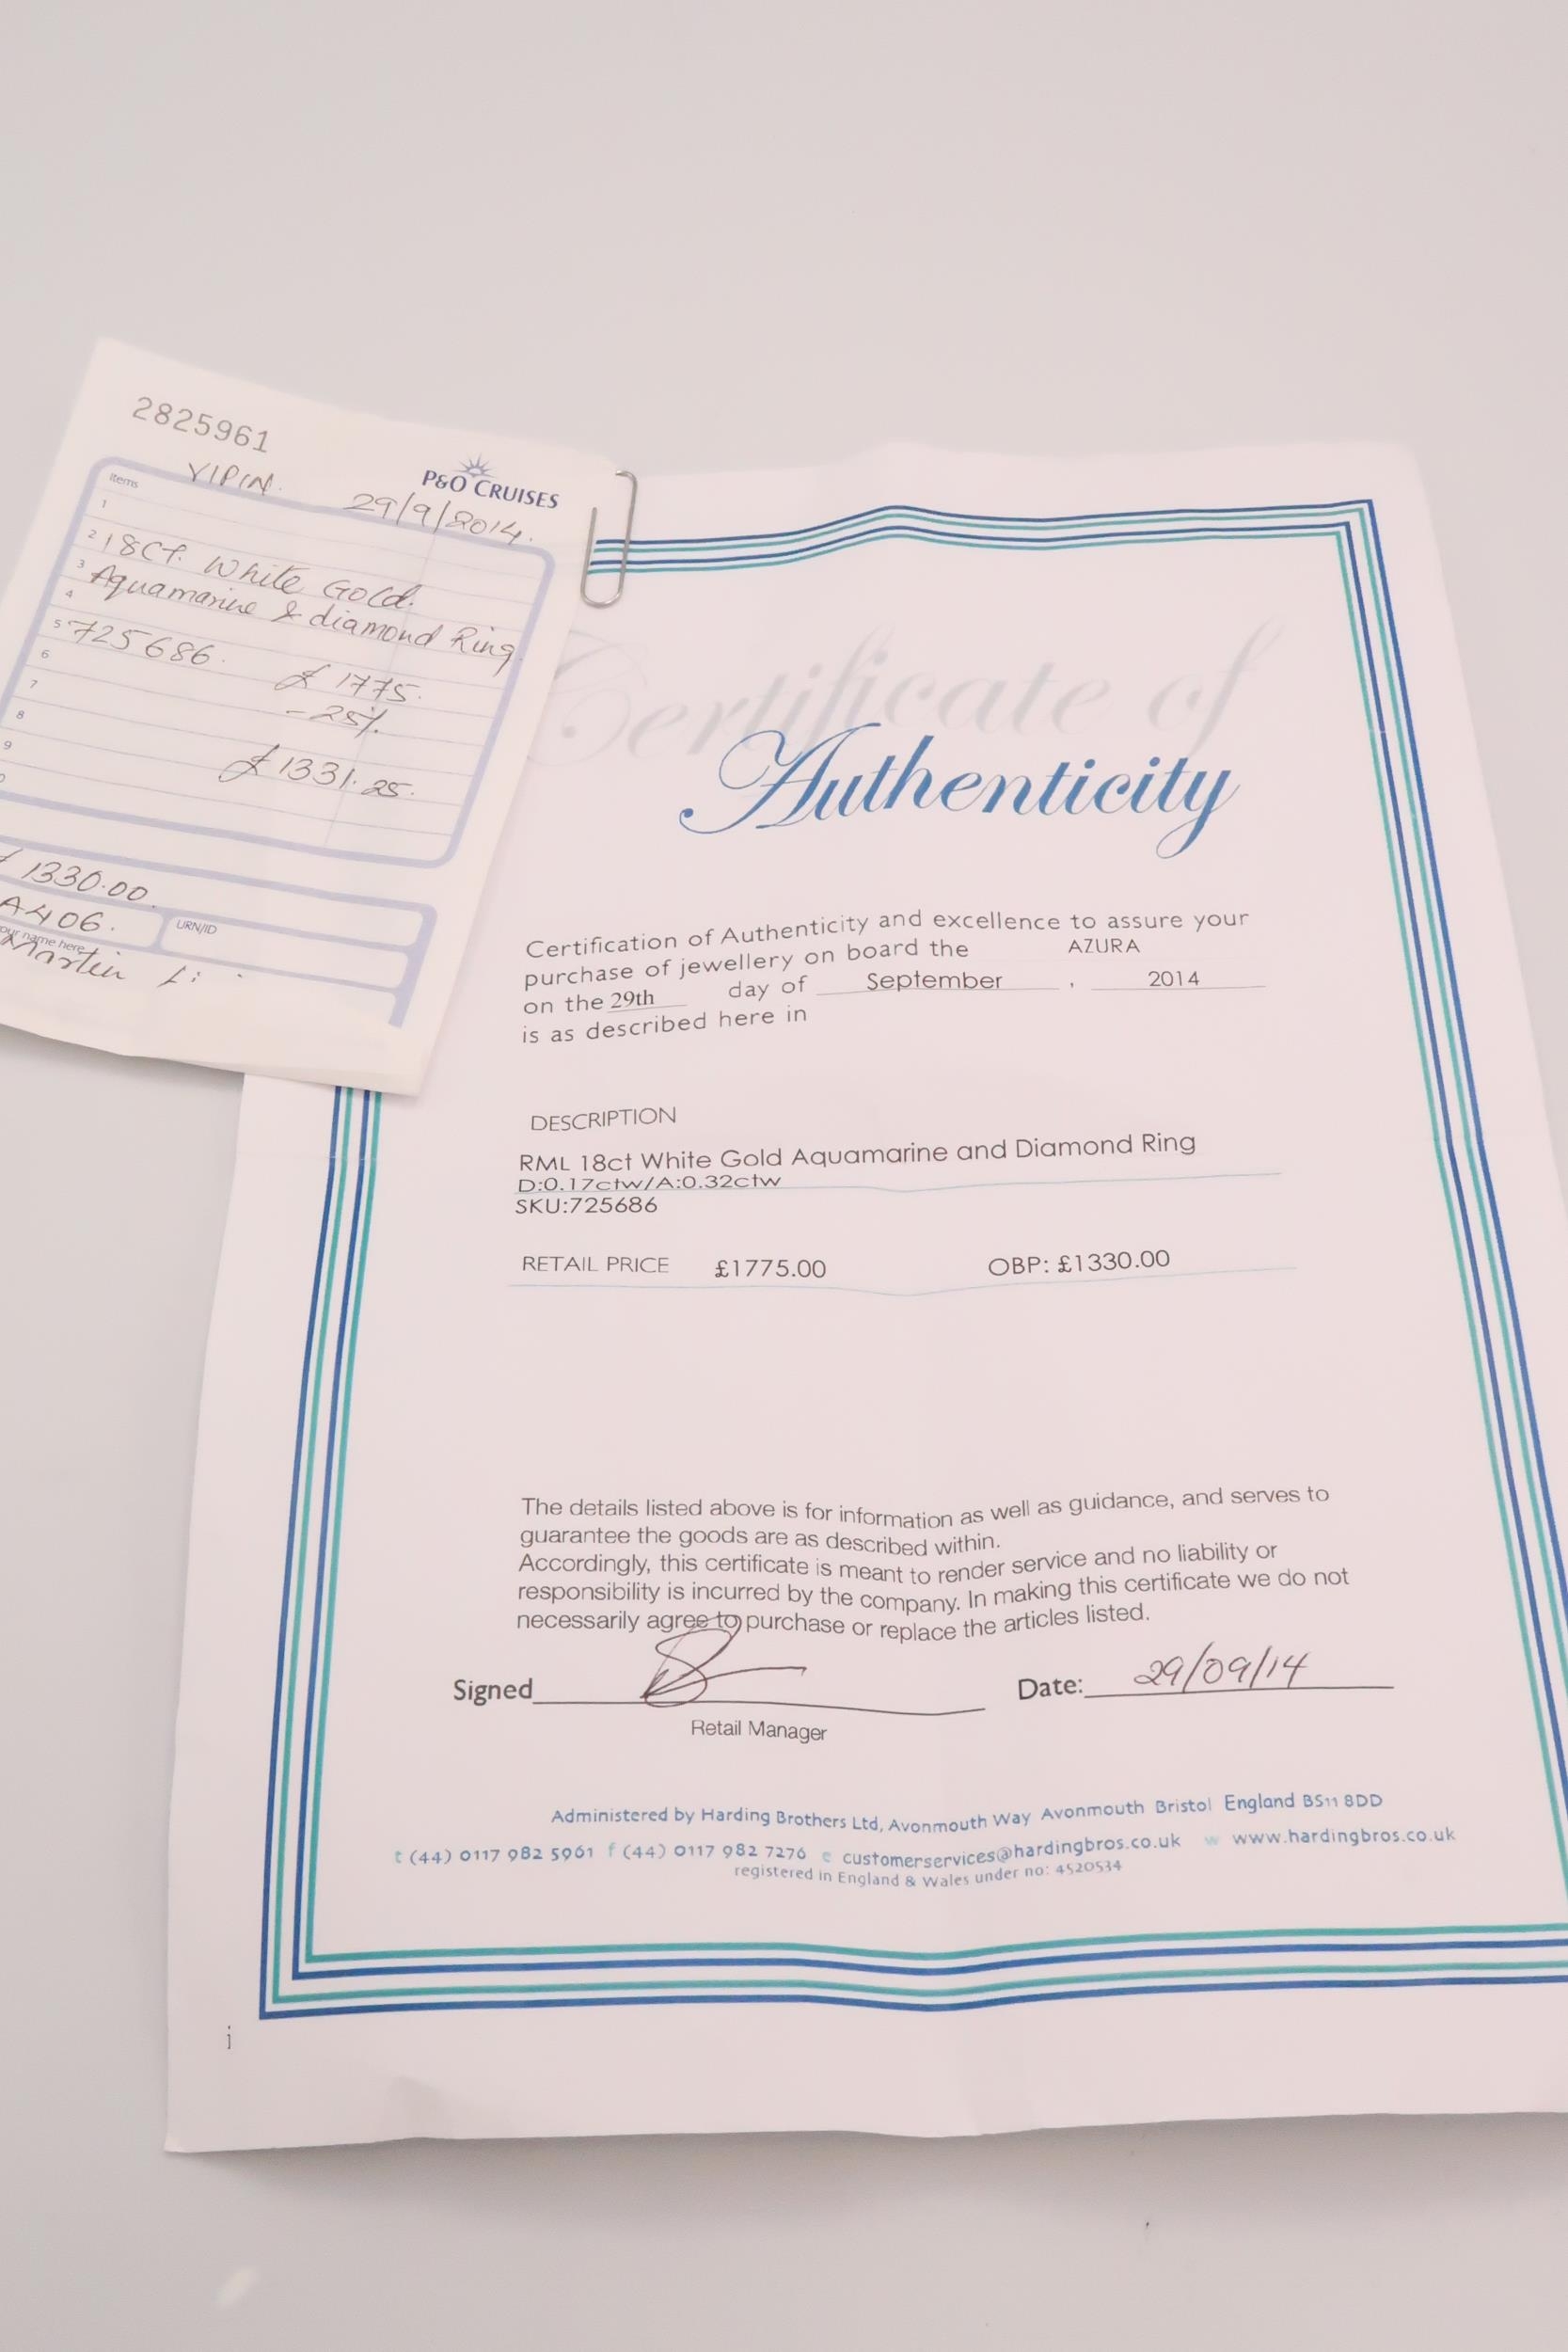 2825961
P&O CRUISES
Items
VIPIN.
29/9/2014.
1
2 18Ct. White Gold.
3 Aquamarine & diamond Ring.
4
5 725686.
6 £ 1775.
7 - 25%
8
9 £ 1331.25.
£ 1330.00
A406.
URN/ID
your name here
Martin
Certificate of
Authenticity
Certification of Authenticity and excellence to assure your
purchase of jewellery on board the AZURA
on the 29th day of September , 2014
is as described here in
DESCRIPTION
RML 18ct White Gold Aquamarine and Diamond Ring
D:0.17ctw/A:0.32ctw
SKU:725686
RETAIL PRICE £1775.00 OBP: £1330.00
The details listed above is for information as well as guidance, and serves to
guarantee the goods are as described within.
Accordingly, this certificate is meant to render service and no liability or
responsibility is incurred by the company. In making this certificate we do not
necessarily agree to purchase or replace the articles listed.
Signed Date: 29/09/14
Retail Manager
Administered by Harding Brothers Ltd, Avonmouth Way Avonmouth Bristol England BS11 8DD
t (44) 0117 982 5961 f (44) 0117 982 7276 e customerservices@hardingbros.co.uk w www.hardingbros.co.uk
registered in England & Wales under no: 4520534
i